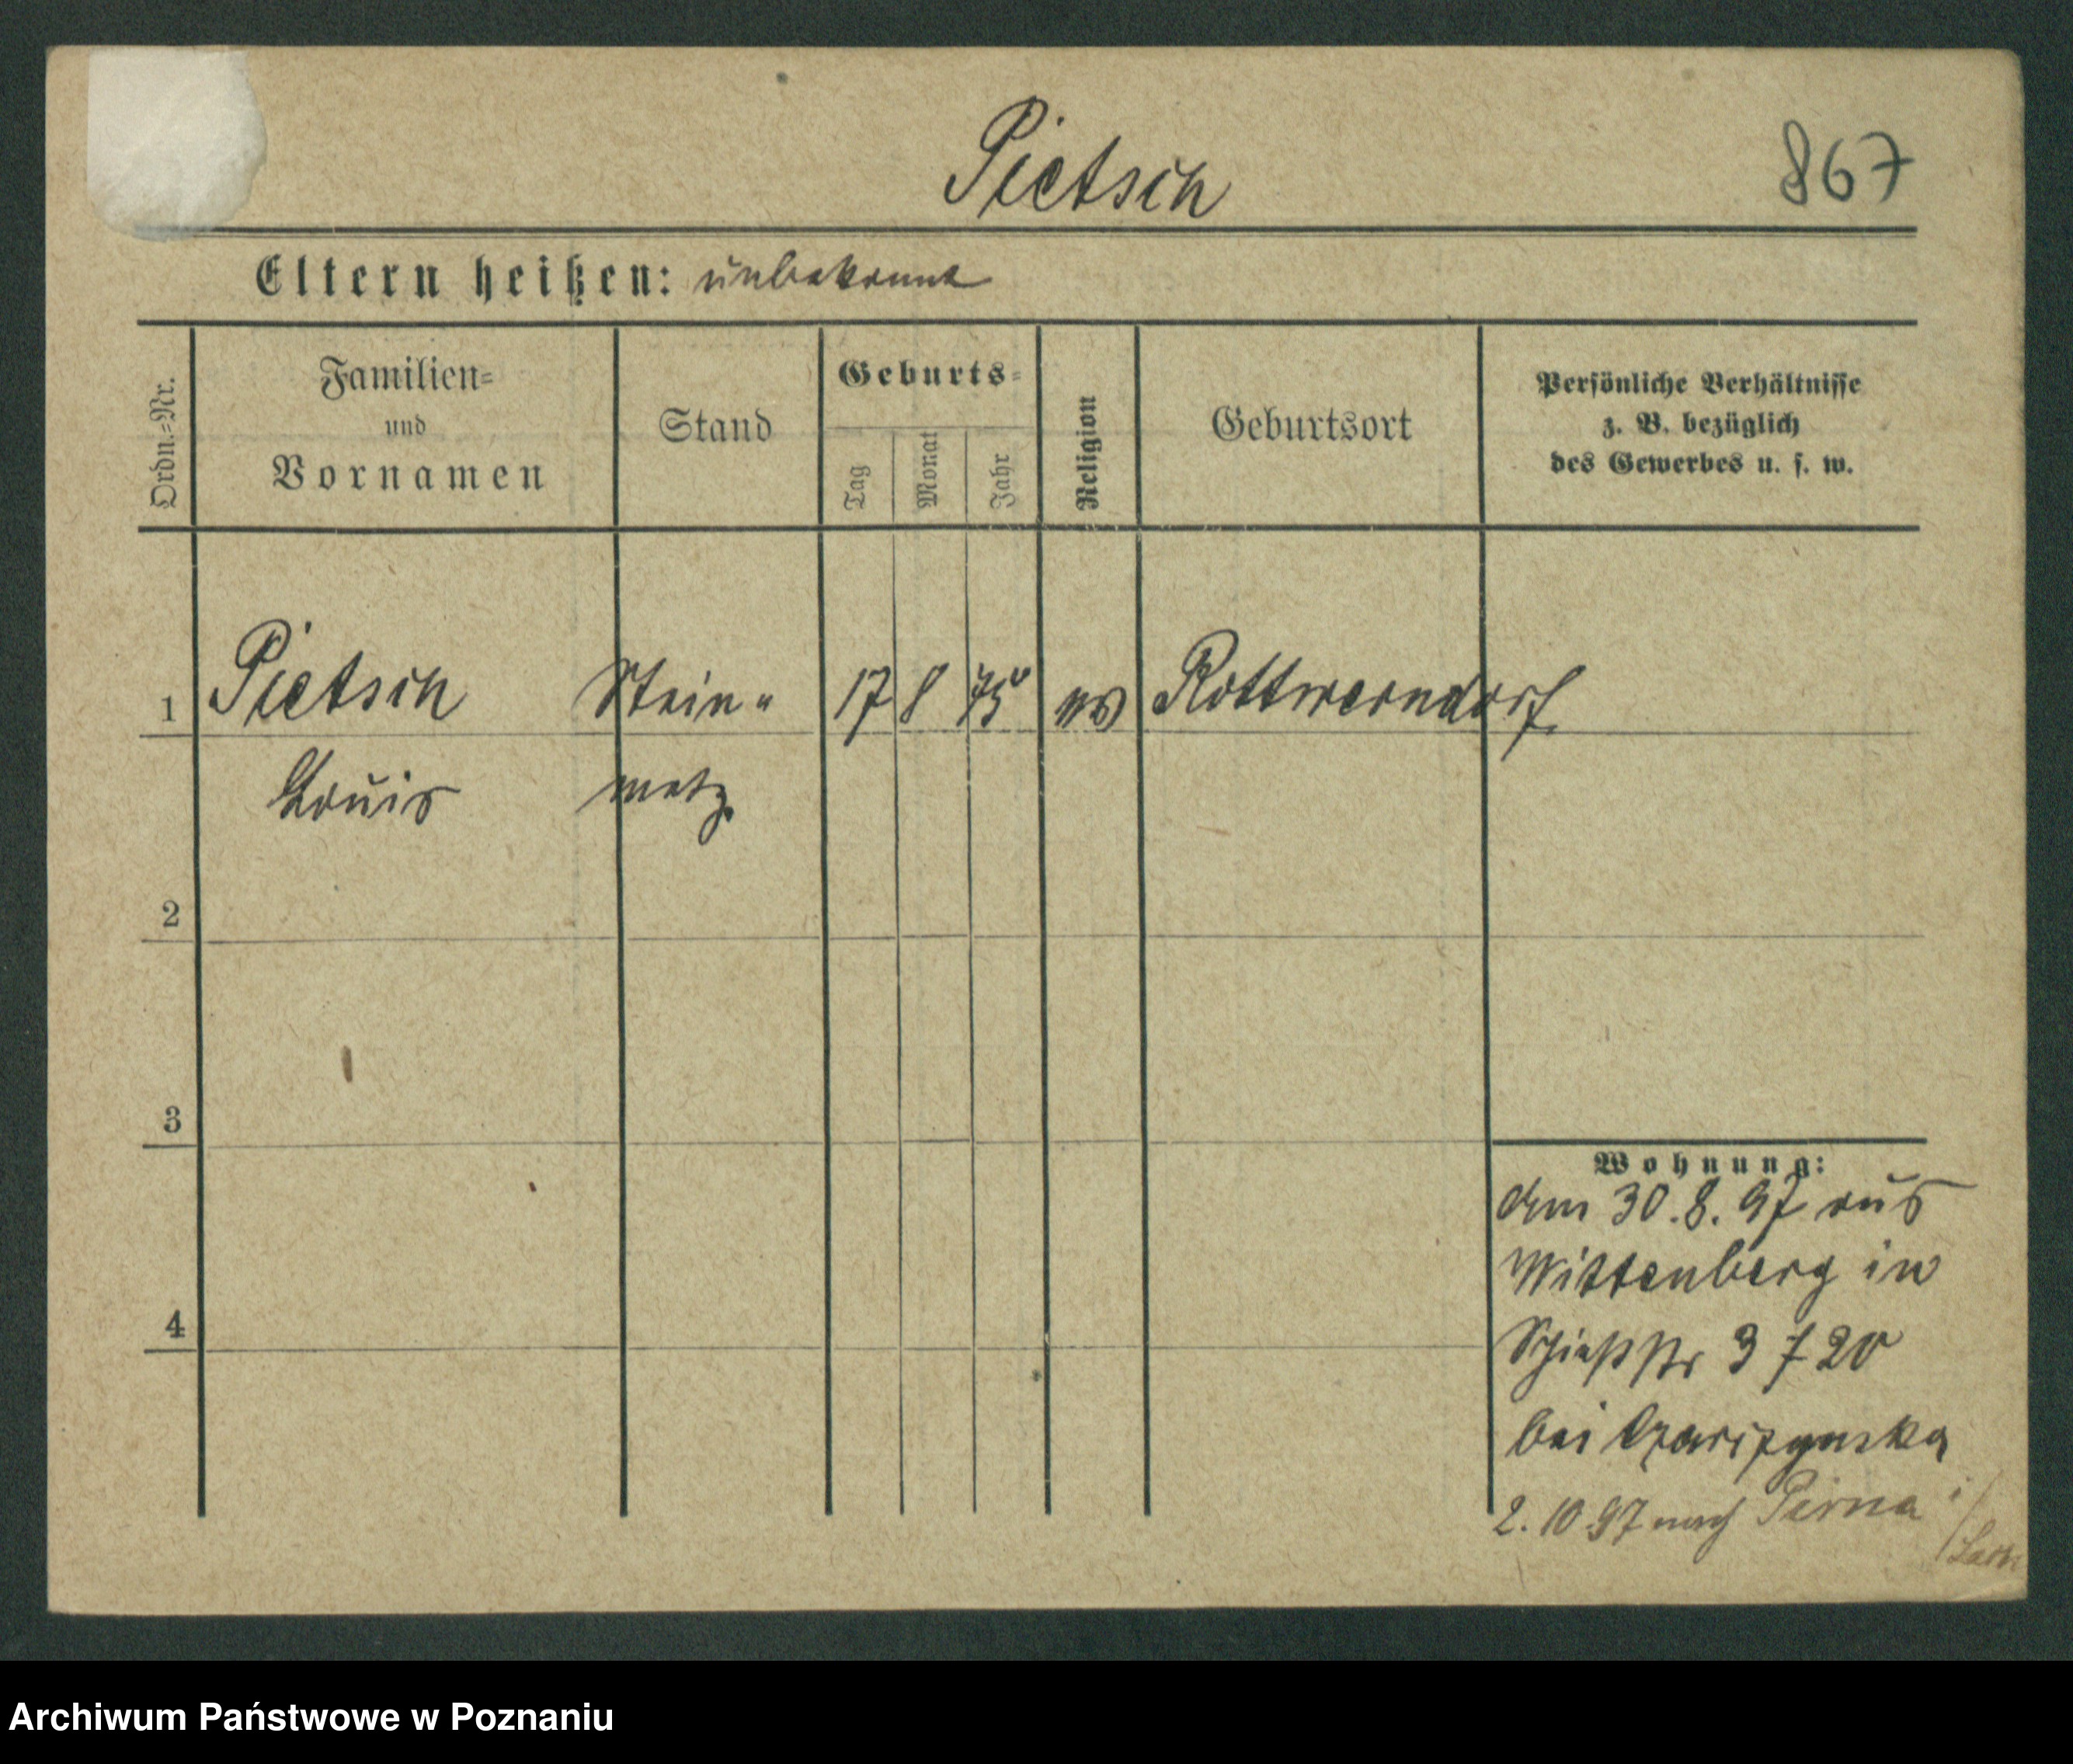 Pietsch
867
Eltern heißen: unbekannt
Ordn.-Nr.
Familien-
und
Vornamen
Stand
Geburts-
Tag
Monat
Jahr
Religion
Geburtsort
Persönliche Verhältnisse
z. B. bezüglich
des Gewerbes u. s. w.
1 Pietsch Stein- 17 8 75 ev Rottwerndorf
Louis metz
2
3
4
Wohnung:
30.8.97 aus
Wittenberg in
Schießstr 3 720
bei
2. 10 97 nach Pirna
Archiwum Państwowe w Poznaniu